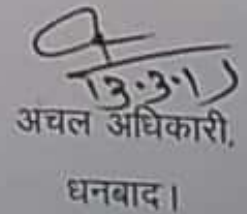 13.3.1
अचल अधिकारी,
धनबाद।